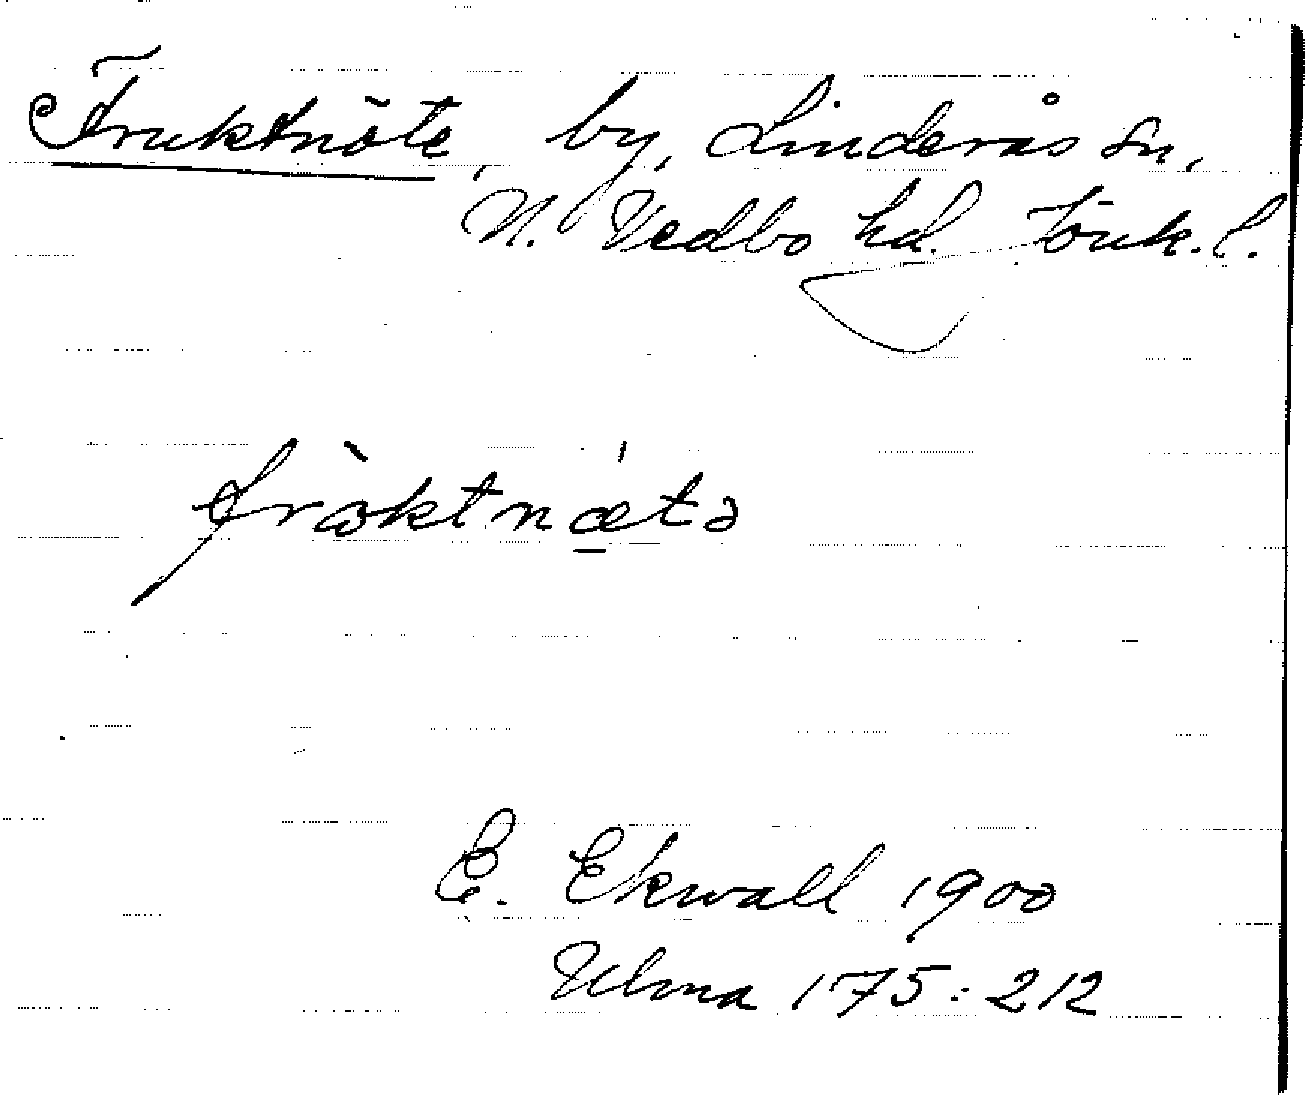 Fruktnöte, by, Linderås sn,
N. Vedbo hd. Jönk. l.
fròktnǽtə
E. Ekwall 1900
Ulma 175:212